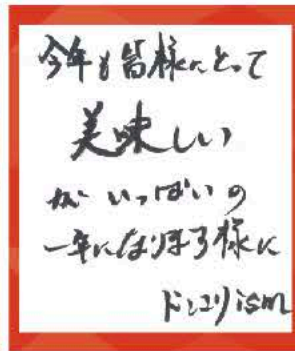 今年も皆様にとって
美味しい
が いっぱいの
一年になります様に
ドンコリism